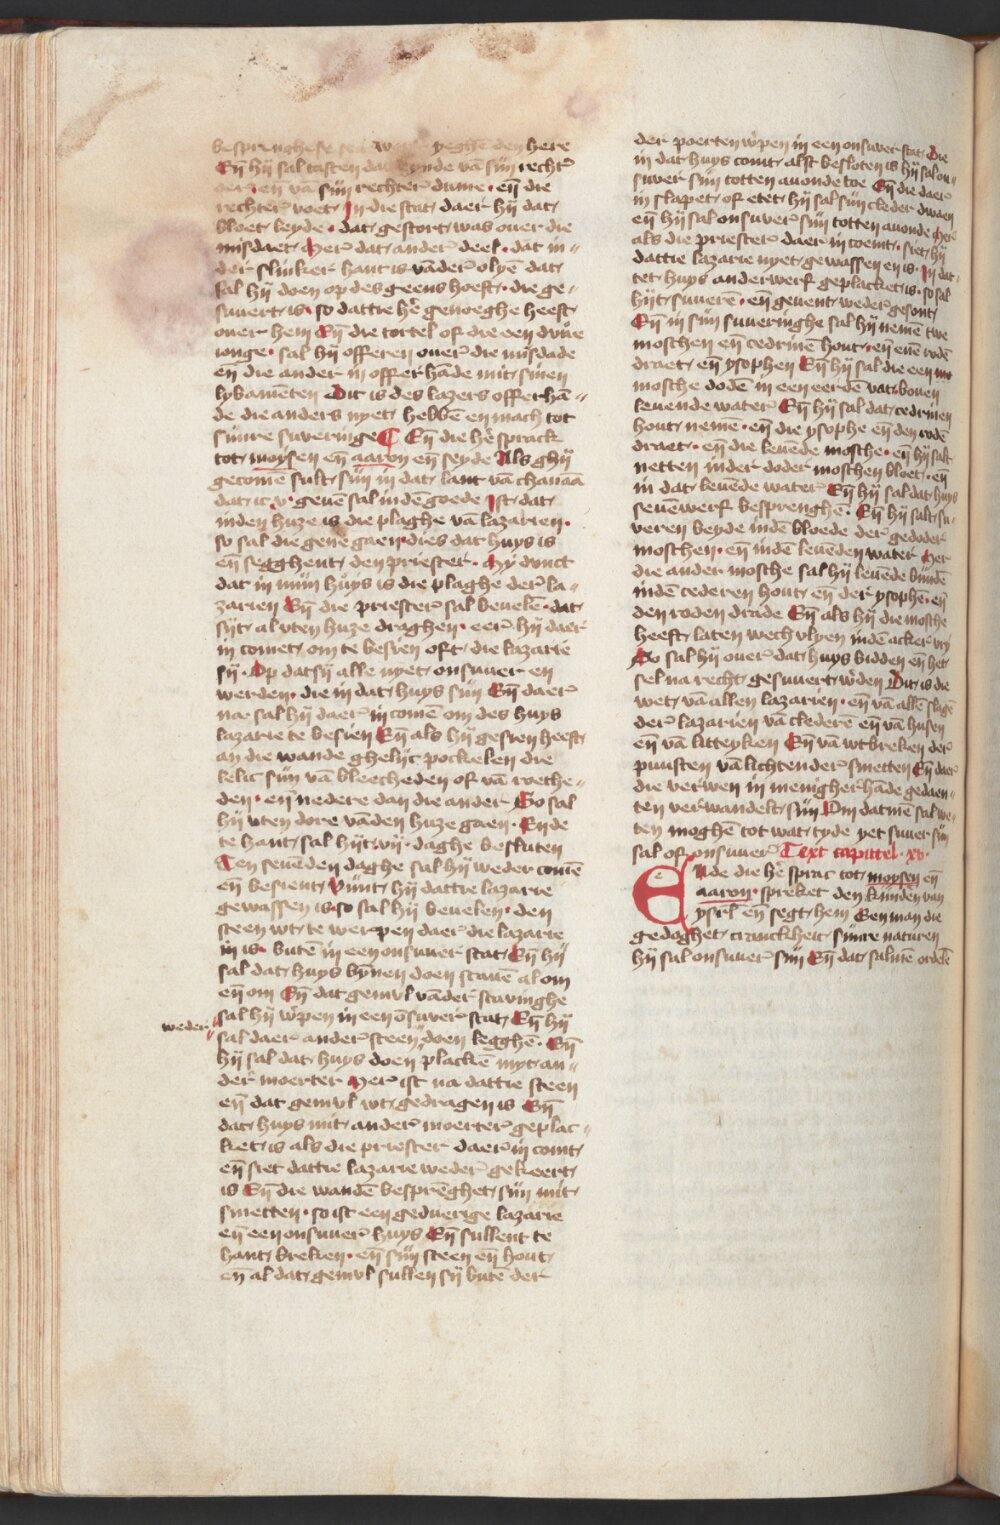 besprenghese yeghē den here
Eñ hij sal tasten dat eynde vā sijn rechtˀ
oer · eñ vā sijn rechter dume · eñ die
rechter voet · In die stat daer hij dat
bloet leyde · dat gestort was ouer die
misdaet · Merˀ dat anderˀ deel · dat in
der slinker hant is vāderˀ olyē dat
sal hij doen op des geens hoeft · die ge
suuert is · so dattie hē genoeghe heeft
ouer hem Eñ die tortel of die een duue
ionge · sal hij offeren ouerˀ die misdade
en die ander in offerhāde mit sinen
lybamēten Dit is des lazers offerhā
de die anders nyet hebbē en mach tot
sinre suveringe ¶ Eñ die hē sprack
tot moysen eñ aaron eñ seyde Als ghij
gecomē sult sijn in dat lant vā chanaā
dat ic v · geuē sal indē goede Ist dat
inden huze is die plaghe vā lazarien ·
so sal die genē gaen dies dat huys is
eñ segghent den priester · My dunct
dat in mijn huys is die plaghe derˀ la
zarien Eñ die priesterˀ sal beuelē · dat
sijt al vten huze draghen · eerˀ hij daer
in comet om te besien oft die lazarie
sy · Op datsij alle nyet onsuuer en
werden · die in dat huys sijn Eñ daerˀ
na sal hij daerˀ in comē om des huys
lazarie te besien Eñ als hij gesien heeft
an die wande ghelijc pockelen die
lelic sijn vā bleecheden of vā roethe
den · eñ nedere dan die ander So sal
hij vten dore vāden huze gaen · Ende
te hant sal hijt vij · daghe besluten
Ten seuēden daghe sal hij weder comē
eñ besient Vijnt hij dattie lazarie
gewassen is · so sal hij beuelen · den
steen wt te werpen daerˀ die lazarie
in is · butē in een onsuuer stat Eñ hij
sal dat huys bynen doen scauē al om
eñ om Eñ dat gemul vāderˀ scauinghe
sal hij w̄pen in een ōsuuerˀ stat Eñ hij
weder
sal daerˀ anderˀ steen doen legghē · Eñ
hij sal dat huys doen plackē myt an
der moerter Merˀ ist na dattie steen
eñ dat gemul wt gedragen is Eñ
dat huys mit anderˀ moerterˀ geplac
ket is als die priester daerˀ in comt
eñ siet dattie lazarie wederˀ gekeert
is Eñ die wandē besprēghet sijn mit
smetten · so ist een geduerige lazarie
eñ een onsuuerˀ huys Eñ sullent te
hant breken · eñ sijn steen eñ hout
eñ al dat gemul sullen sij butē der
der poerten w̄pen in een onsuuer stat Die
in dat huys comt alst besloten is hij sal on
suuer sijn totten auonde toe Eñ die daerˀ
in slapet of etet hij sal sijn cleder dwaen
eñ hij sal onsuuerˀ sijn totten auonde Merˀ
als die priesterˀ daer in coemt · siet hij
dattie lazarie nyet gewassen en is · In dat
tet huys anderwerf geplacket is · so sal
hijt suuerē · eñ geuent wederˀ gesont
Eñ in sijn suueringhe sal hij nemē twe
moschen eñ cedrinē hout · eñ enē rodē
draet eñ ysophen Eñ hij sal die een
mosche dodē in een eerdē vat bouen
leuende waterˀ Eñ hij sal dat cedrinen
hout nemē · eñ die ysophe eñ den rodē
draet · eñ die leuēde mosche · eñ hij salt
netten in der doder moschen bloet · eñ
in dat leuēde waterˀ Eñ hij sal dat huys
seuewerf besprenghē · Eñ hij salt su
veren beyde indē bloede derˀ gedoder
moschen · eñ indē leuēden waterˀ Mer
die ander mosche sal hij leuēde bindē
indē cederen hout · eñ derˀ ysophē · eñ
den roden drade Eñ als hij die mosche
heeft laten wech vlyen indē acker vry
So sal hij ouerˀ dat huys bidden eñ het
sel na recht gesuuert w̄den Dit is die
wet vā allen lazarien · eñ vā allē slagē
derˀ lazarien vā clederē eñ vā husen
eñ vā litteyken Eñ vā wtbreken derˀ
puusten vā lichtenderˀ smetten Eñ daerˀ
die verwen in menigherhāde gedaen
ten verˀwandelt sijn Om datmē sal we
ten moghē tot wat tyde yet suuer sijn
sal of onsuuerˀ Text capittel · xv ·
Ende die hē sprac tot moysen eñ
aaron · spreket den kinden van
ysrl̄ eñ segt hem Een man die
gedoghet cranckheit sinre naturen
hij sal onsuuerˀ sijn Eñ dat salmē ordelē